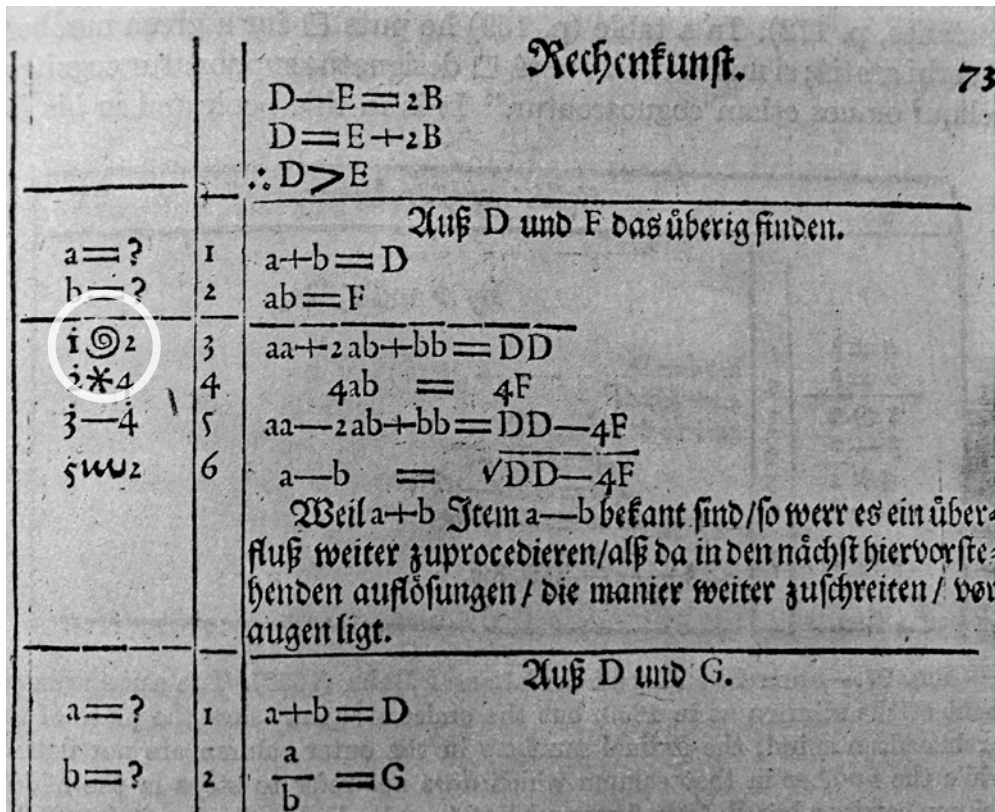 Rechenkunst. 73
D—E=2B
D=E+2B
∴D>E
Auß D und F das überig finden.
a=? 1 a+b=D
b=? 2 ab=F
1@2 3 aa+2ab+bb=DD
2*4 4 4ab = 4F
3—4 5 aa—2ab+bb=DD—4F
5ɯ2 6 a—b = √DD—4F
Weil a+b Item a—b bekant sind/so werr es ein über-
fluß weiter zuprocedieren/alß da in den nächst hiervorste-
henden auflösungen/ die manier weiter zuschreiten/ vor
augen ligt.
Auß D und G.
a=? 1 a+b=D
b=? 2 a/b =G